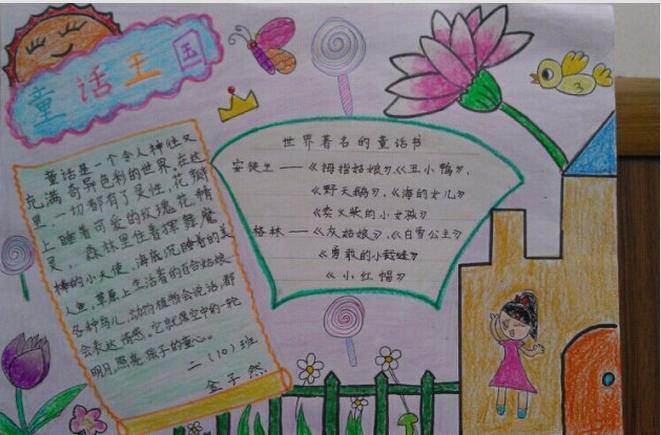 童话王国
童话是一个令人神往又
充满奇异色彩的世界。在这
里一切都有了灵性，花瓣
上睡着可爱的玫瑰花精
灵，森林里住着挥舞魔
棒的小天使，海底沉睡着的美
人鱼，草原上生活着的百合姑娘
各种鸟儿，动物植物会说话，都
会表达情感。它就像空中的一轮
明月，照亮孩子的童心。
二（10）班
金子然
世界著名的童话书
安徒生——《拇指姑娘》、《丑小鸭》、
《野天鹅》、《海的女儿》
《卖火柴的小女孩》
格林——《灰姑娘》、《白雪公主》
《勇敢的小裁缝》
《小红帽》
3